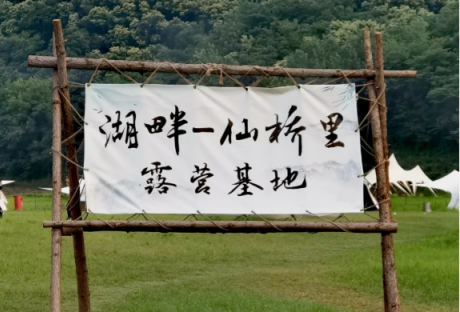 湖畔一仙桥里
露营基地